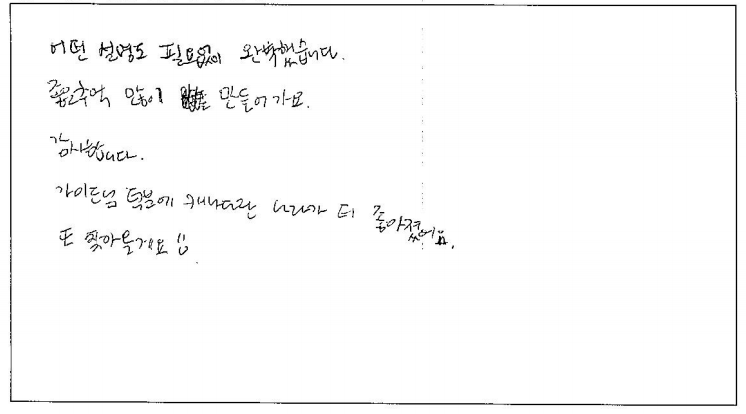 어떤 설명도 필요없이 완벽했습니다.
좋은추억 많이 만들어가요.
감사합니다.
가이드님 덕분에 캐나다란 나라가 더 좋아졌어요.
또 찾아올게요 !!